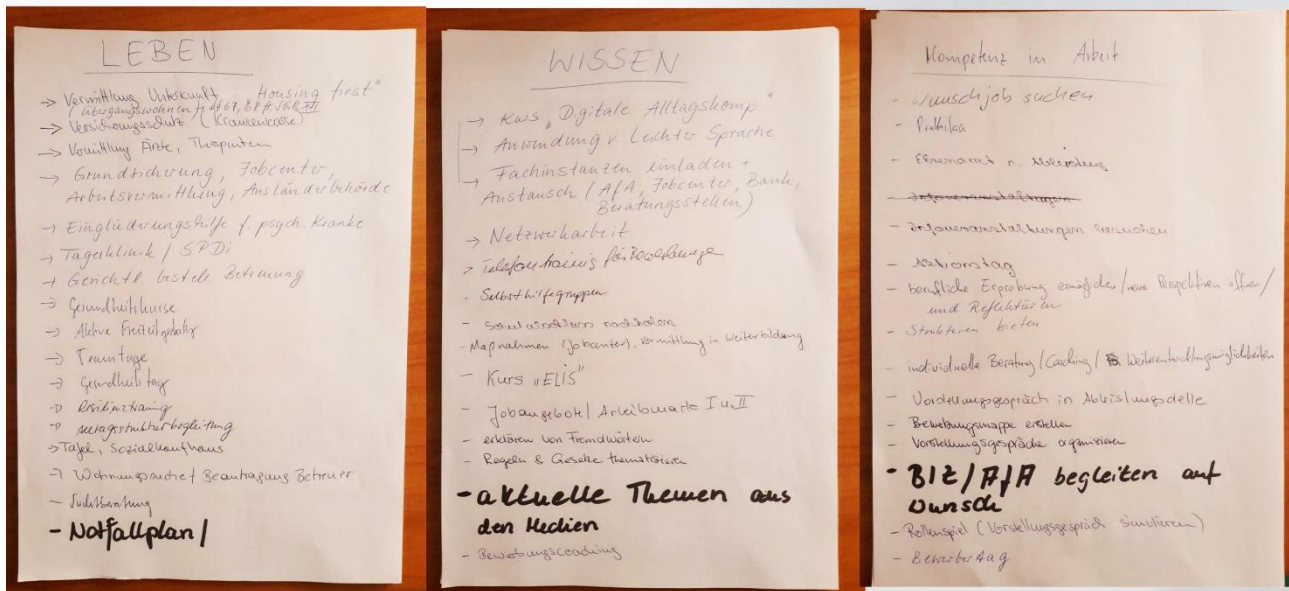 LEBEN
→ Vermittlung Unterkunft „Housing first"
(Übergangswohnen
→ Versicherungsschutz (Krankenkasse)
→ Vermittlung Ärzte, Therapeuten
→ Grundsicherung, Jobcenter,
Arbeitsvermittlung, Ausländerbehörde
→ Eingliederungshilfe f. psych. Kranke
→ Tagesklinik / SPDi
→ Gerichtl. bestell. Betreuung
→ Gesundheitskurse
→ Aktive
→ Teamtage
→ Gesundheitstag
→ Resilienztraining
→ Tagesstrukturbegleitung
→ Tafel, Sozialkaufhaus
→ Beantragung Betreuer
- Suchtberatung
- Notfallplan /
WISSEN
→ Kurs „Digitale Alltagskomp"
→ Anwendung v. Leichter Sprache
→ Fachinstanzen einladen +
Austausch (AfA, Jobcenter, Bank,
Beratungsstellen)
→ Netzwerkarbeit
> Telefontraining für Bewerbunge
. Selbsthilfegruppen
- Schulabschluss nachholen
- Maßnahmen (Jobcenter), Vermittlung in Weiterbildung
- Kurs „ELIS"
- Jobangebote / Arbeitsmarkt I u. II
- erklären von Fremdwörten
- Regeln & Gesetze thematisieren
- aktuelle Themen aus
den Medien
- Bewerbungscoaching
Kompetenz in Arbeit
- Wunschjob suchen
- Praktika
- Ehrenamt n.
- Infoveranstaltungen
- Infoveranstaltungen besuchen
- Aktionstag
- berufliche Erprobung ermöglichen / neue Perspektiven öffnen /
und Reflektieren
- Strukturen bieten
- individuelle Beratung / Coaching / Weiterentwicklungsmöglichkeiten
- Vorstellungsgespräch in
- Bewerbungsmappe erstellen
- Vorstellungsgespräche organisieren
- BIZ / AfA begleiten auf
Wunsch
- Rollenspiel (Vorstellungsgespräch simulieren)
- BewerberAag